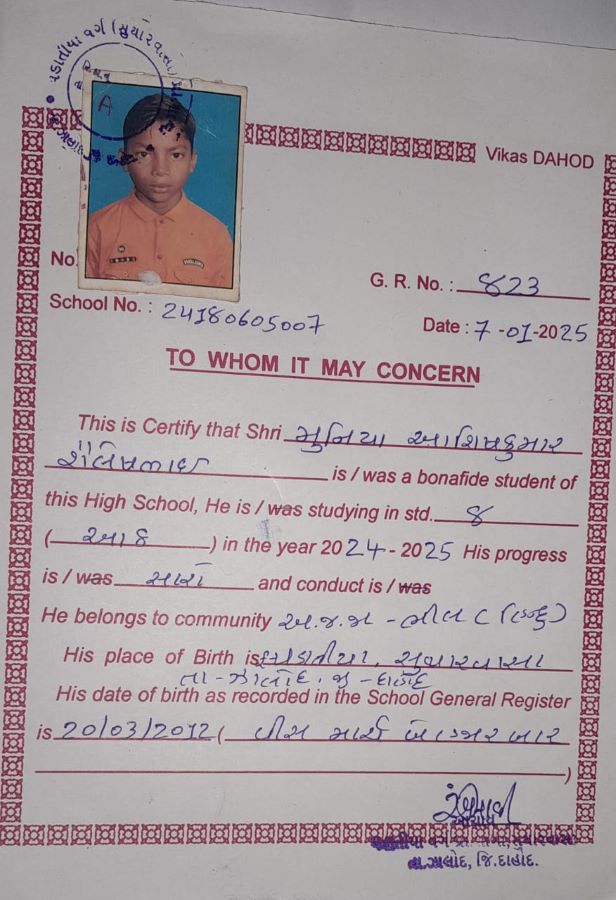 વડાતીયા વર્ગ (સુથારવાસા)
A
Vikas DAHOD
No.
G. R. No. : ૪23
School No. : 24180605007
Date : 7-01-2025
TO WHOM IT MAY CONCERN
This is Certify that Shri મુનિયા આશિષકુમાર
શૈલેષભાઈ is / was a bonafide student of
this High School, He is / was studying in std. ૪
(આઠ) in the year 2024 - 2025 His progress
is / was સારો and conduct is / was
He belongs to community અ.જ.જા - ભીલ (હિન્દુ)
His place of Birth is સુથારવાસા
તા - ઝાલોદ. જી - દાહોદ
His date of birth as recorded in the School General Register
is 20/03/2012 ( વીસ માર્ચ બે હજાર બાર
)
આચાર્ય
વર્ગ પ્રા. શાળા, સુથારવાસા
તા.ઝાલોદ, જિ.દાહોદ.